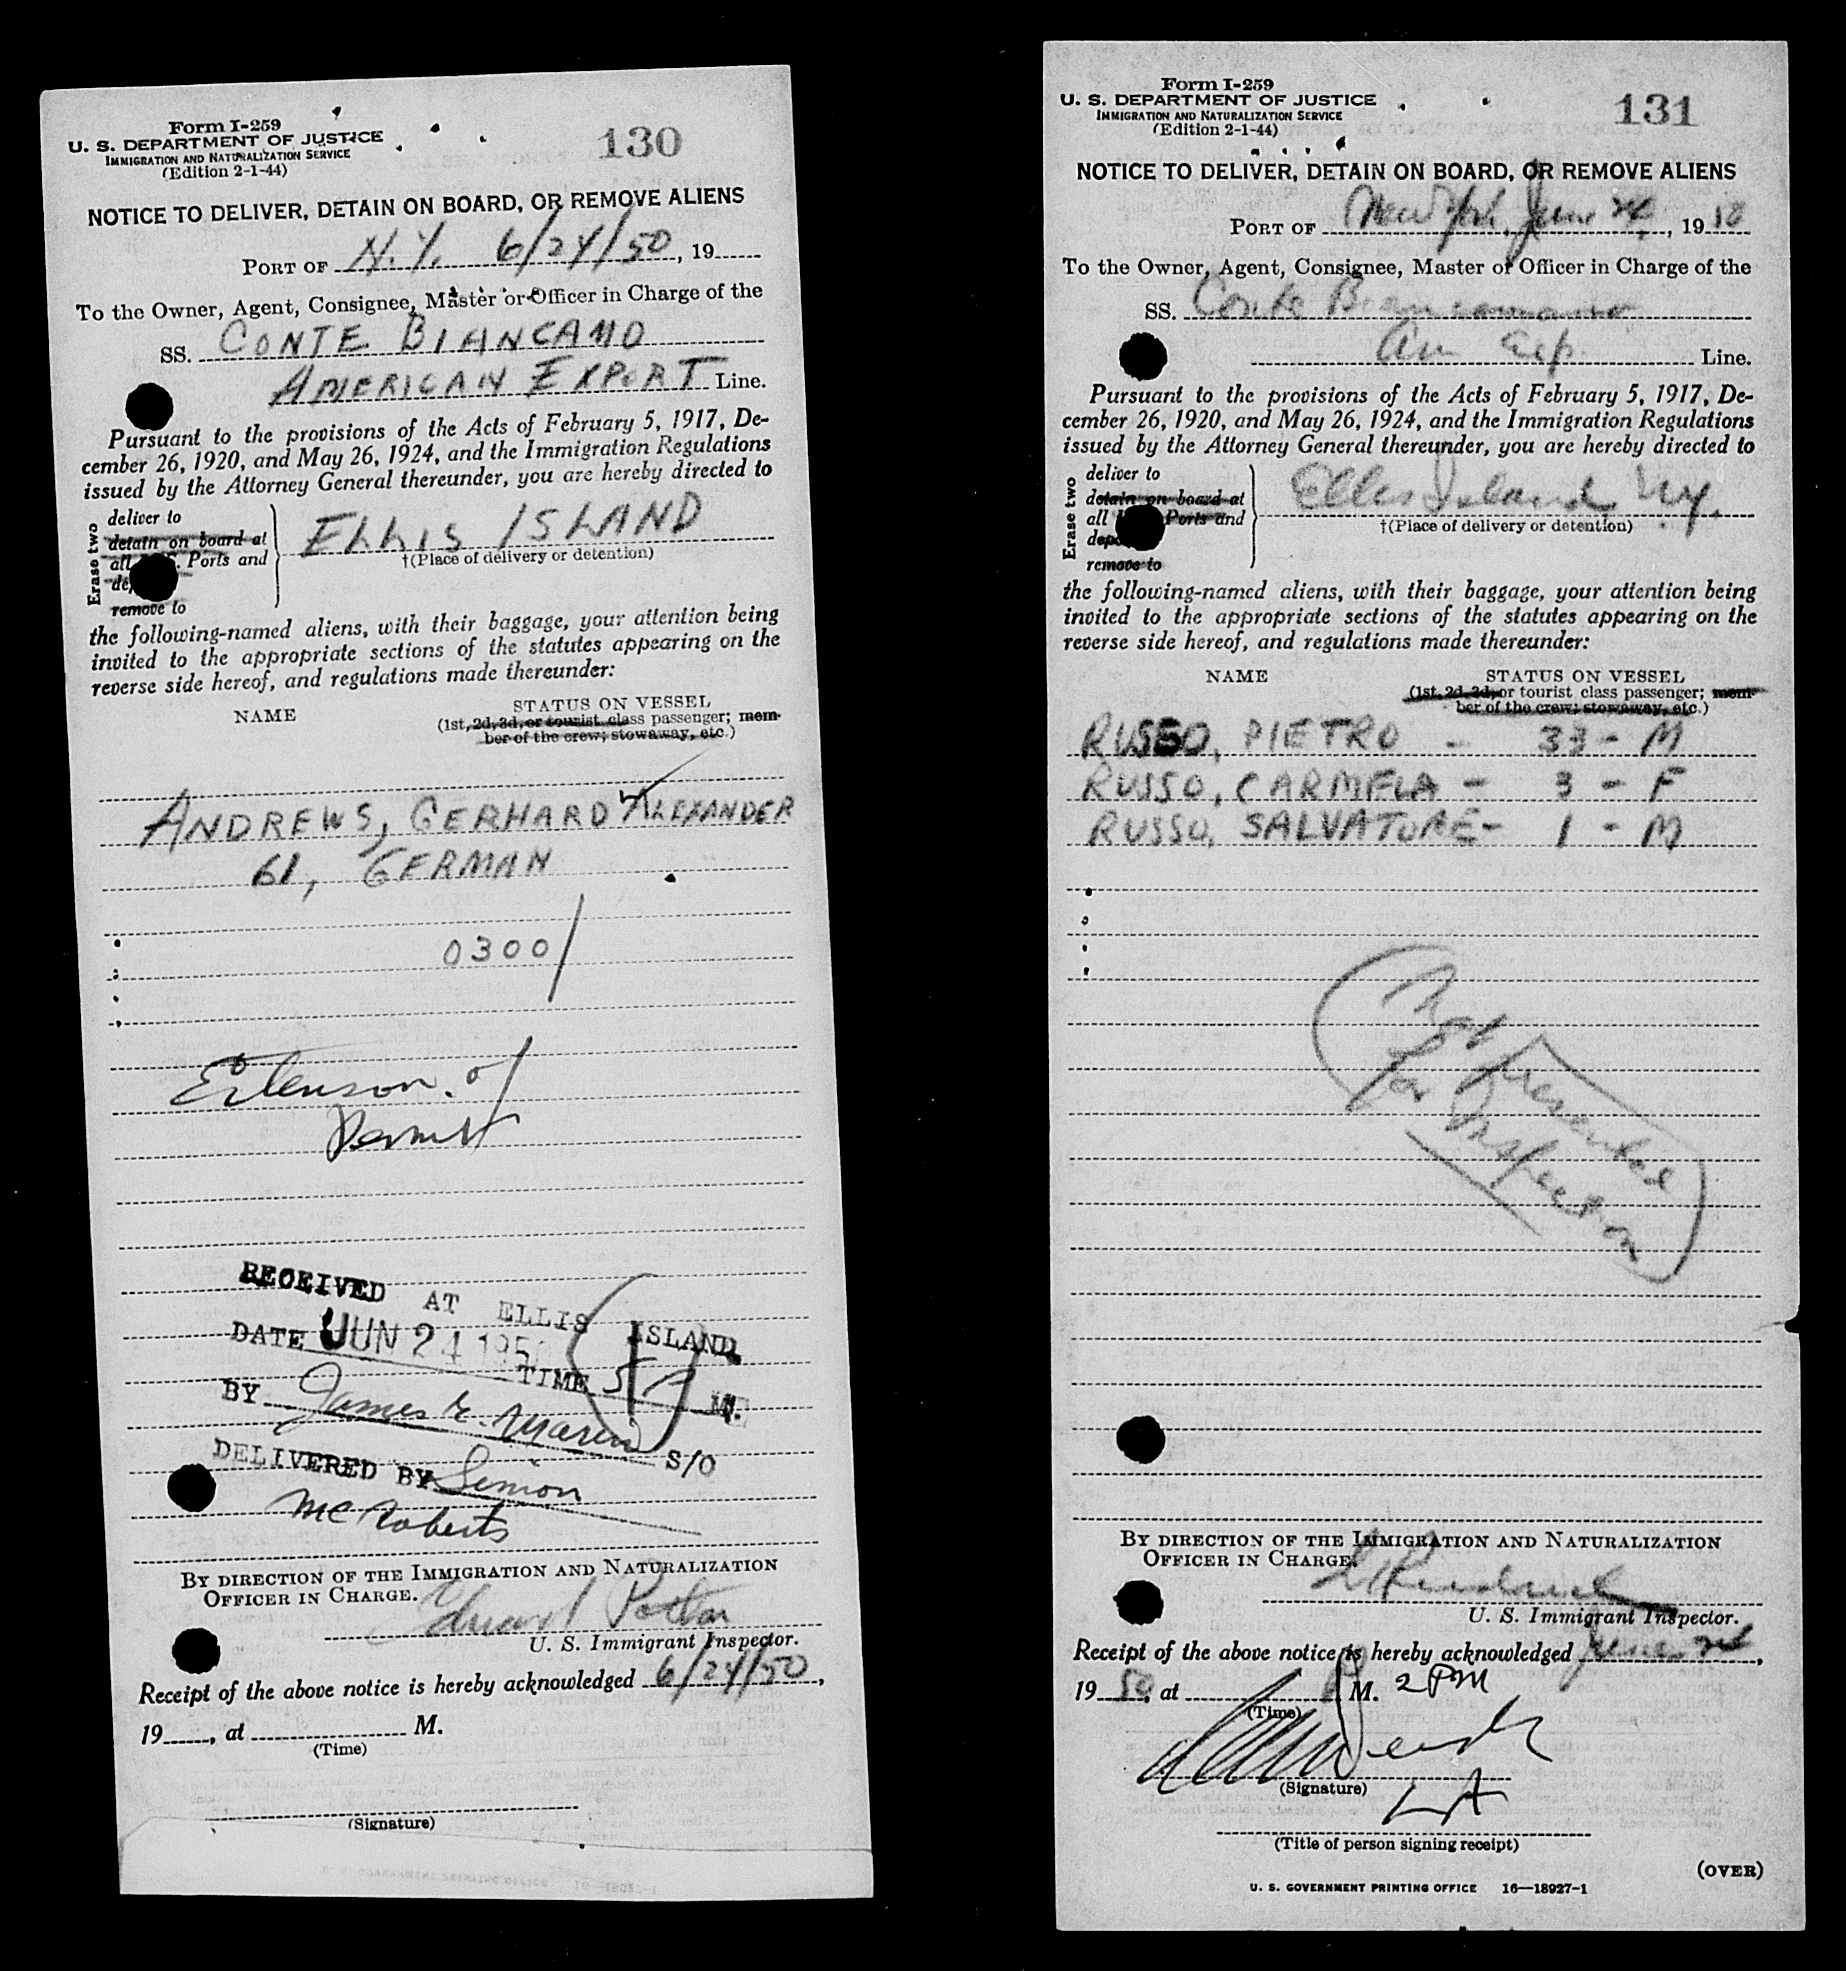 Form I-259
U. S. DEPARTMENT OF JUSTICE
IMMIGRATION AND NATURALIZATION SERVICE
(Edition 2-1-44)
130
NOTICE TO DELIVER, DETAIN ON BOARD, OR REMOVE ALIENS
PORT OF N.Y. 6/24/50, 19
To the Owner, Agent, Consignee, Master or Officer in Charge of the
SS. CONTE BIANCAMO
AMERICAN EXPORT Line.
Pursuant to the provisions of the Acts of February 5, 1917, De-
cember 26, 1920, and May 26, 1924, and the Immigration Regulations
issued by the Attorney General thereunder, you are hereby directed to
Erase two
deliver to
detain on board at
all U. S. Ports and
remove to
ELLIS ISLAND
†(Place of delivery or detention)
the following-named aliens, with their baggage, your attention being
invited to the appropriate sections of the statutes appearing on the
reverse side hereof, and regulations made thereunder:
NAME
STATUS ON VESSEL
(1st, 2d, 3d, or tourist class passenger; mem-
ber of the crew; stowaway, etc.)
ANDREWS, GERHARD ALEXANDER
61, GERMAN
0300/
Extenson. of
Permit
RECEIVED AT ELLIS ISLAND
DATE JUN 24 195
TIME 5 P M.
BY James E. S/O
DELIVERED BY Simon
McRoberts
BY DIRECTION OF THE IMMIGRATION AND NATURALIZATION
OFFICER IN CHARGE.
U. S. Immigrant Inspector.
Receipt of the above notice is hereby acknowledged 6/24/50,
19, at M.
(Time)
(Signature)
Form I-259
U. S. DEPARTMENT OF JUSTICE
IMMIGRATION AND NATURALIZATION SERVICE
(Edition 2-1-44)
131
NOTICE TO DELIVER, DETAIN ON BOARD, OR REMOVE ALIENS
PORT OF New York, June 24, 1950
To the Owner, Agent, Consignee, Master or Officer in Charge of the
SS. Conte Biancamano
Am Exp. Line.
Pursuant to the provisions of the Acts of February 5, 1917, De-
cember 26, 1920, and May 26, 1924, and the Immigration Regulations
issued by the Attorney General thereunder, you are hereby directed to
Erase two
deliver to
detain on board at
all Ports and
remove to
Ellis Island N.Y.
†(Place of delivery or detention)
the following-named aliens, with their baggage, your attention being
invited to the appropriate sections of the statutes appearing on the
reverse side hereof, and regulations made thereunder:
NAME
STATUS ON VESSEL
(1st, 2d, 3d, or tourist class passenger; mem-
ber of the crew; stowaway, etc.)
RUSSO, PIETRO - 33 - M
RUSSO, CARMELA - 3 - F
RUSSO, SALVATORE - 1 - M
Not presented
for Inspection
BY DIRECTION OF THE IMMIGRATION AND NATURALIZATION
OFFICER IN CHARGE.
U. S. Immigrant Inspector.
Receipt of the above notice is hereby acknowledged June 24,
19 50, at P M. 2 PM
(Time)
(Signature)
(Title of person signing receipt)
(OVER)
U. S. GOVERNMENT PRINTING OFFICE 16—18927-1